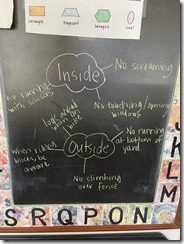 rectangle
trapezoid
hexagon
oval
Inside
No screaming
no running
with scissors
No touching/opening
windows
look ahead
when on
bike
Outside
No running
at bottom of
yard
When riding
bikes, be
aware
No climbing
over fence
S R Q P O N
M
L
K